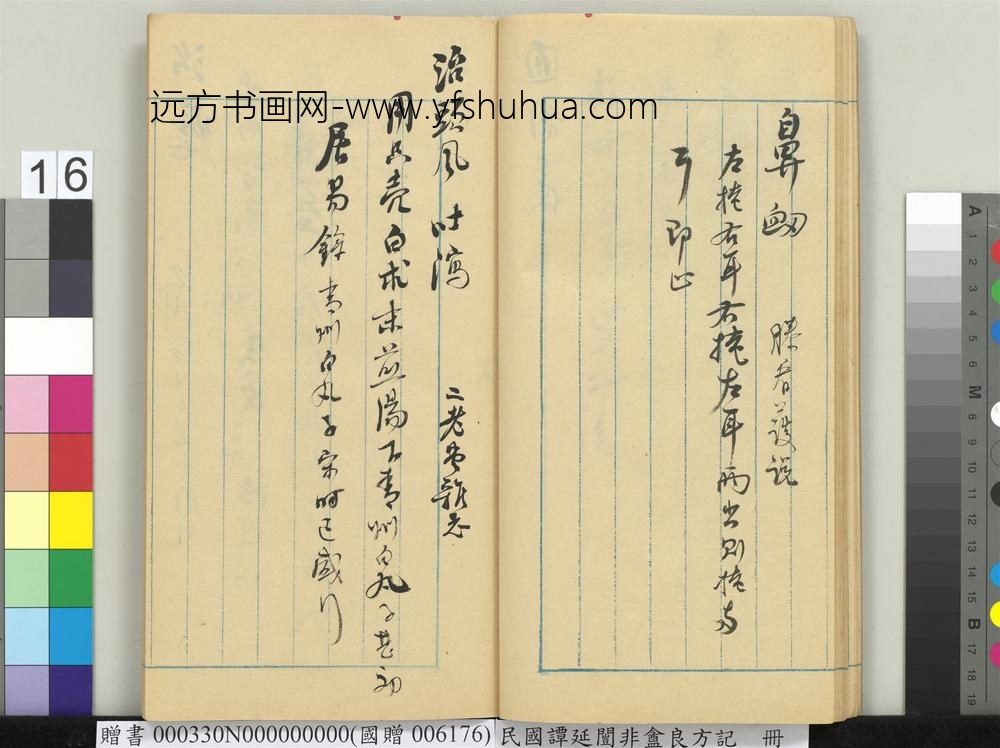 鼻衄 滕 護說
左掩右耳右掩左耳兩出則掩兩
耳即止
治頭風吐瀉 二老堂雜志
用只壳白朮末煎湯下青州白丸子甚
居易錄青州白丸子宋時已盛行
远方书画网-www.yfshuhua.com
16
A 1 2 3 4 5 6 M 8 9 10 11 12 13 14 15 B 17 18 19
贈書 000330N000000000(國贈 006176) 民國譚延闓非盦良方記 冊